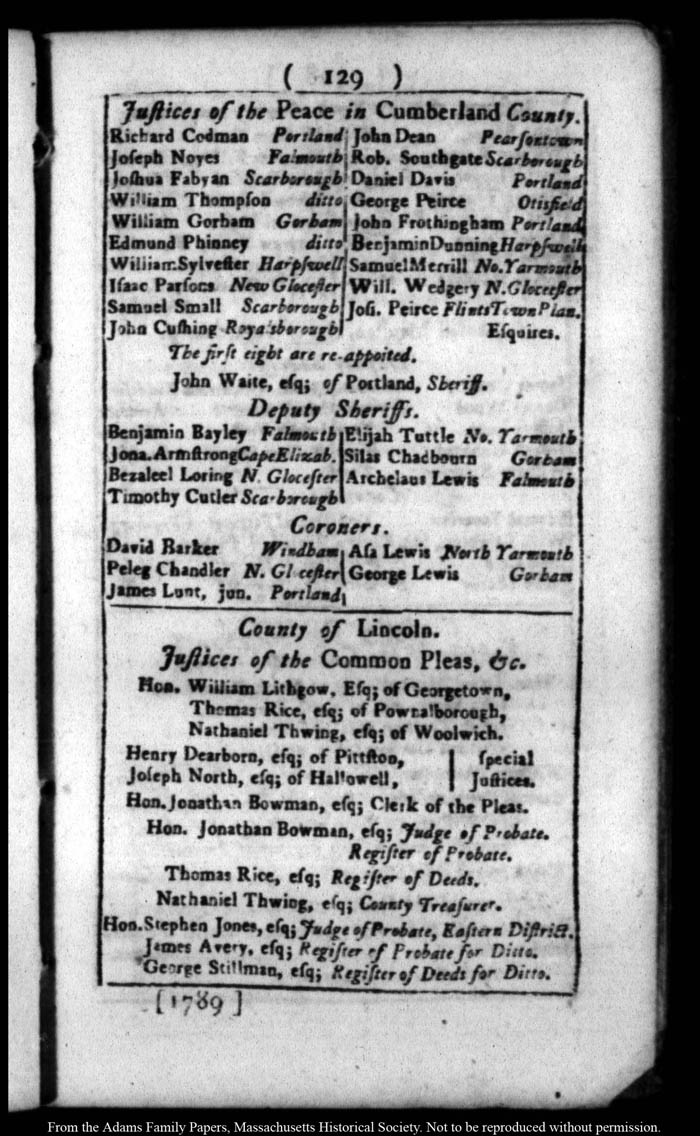 ( 129 )
Juſtices of the Peace in Cumberland County.
Richard Codman Portland
Joſeph Noyes Falmouth
Joſhua Fabyan Scarborough
William Thompſon ditto
William Gorham Gorham
Edmund Phinney ditto
William Sylveſter Harpſwell
Iſaac Parſons New Gloceſter
Samuel Small Scarborough
John Cuſhing Royalsborough
John Dean Pearſontown
Rob. Southgate Scarborough
Daniel Davis Portland
George Peirce Otisfield
John Frothingham Portland
Benjamin Dunning Harpſwell
Samuel Merrill No. Yarmouth
Will. Wedgery N. Gloceſter
Joſi. Peirce Flints Town Plan.
Eſquires.
The firſt eight are re-appoited.
John Waite, eſq; of Portland, Sheriff.
Deputy Sheriffs.
Benjamin Bayley Falmouth
Jona. Armſtrong Cape Elizab.
Bezaleel Loring N. Gloceſter
Timothy Cutler Scarborough
Elijah Tuttle No. Yarmouth
Silas Chadbourn Gorham
Archelaus Lewis Falmouth
Coroners.
David Barker Windham
Peleg Chandler N. Gloceſter
James Lunt, jun. Portland
Aſa Lewis North Yarmouth
George Lewis Gorham
County of Lincoln.
Juſtices of the Common Pleas, &c.
Hon. William Lithgow, Eſq; of Georgetown,
Thomas Rice, eſq; of Pownalborough,
Nathaniel Thwing, eſq; of Woolwich.
Henry Dearborn, eſq; of Pittſton,
Joſeph North, eſq; of Hallowell,
ſpecial
Juſtices.
Hon. Jonathan Bowman, eſq; Clerk of the Pleas.
Hon. Jonathan Bowman, eſq; Judge of Probate.
Regiſter of Probate.
Thomas Rice, eſq; Regiſter of Deeds.
Nathaniel Thwing, eſq; County Treaſurer.
Hon. Stephen Jones, eſq; Judge of Probate, Eaſtern Diſtrict.
James Avery, eſq; Regiſter of Probate for Ditto.
George Stillman, eſq; Regiſter of Deeds for Ditto.
[1789]
From the Adams Family Papers, Massachusetts Historical Society. Not to be reproduced without permission.